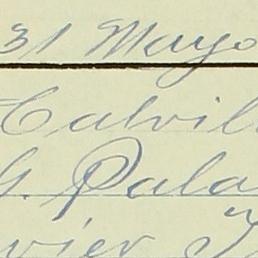 31 Mayo
Calvill
G. Pala
vier